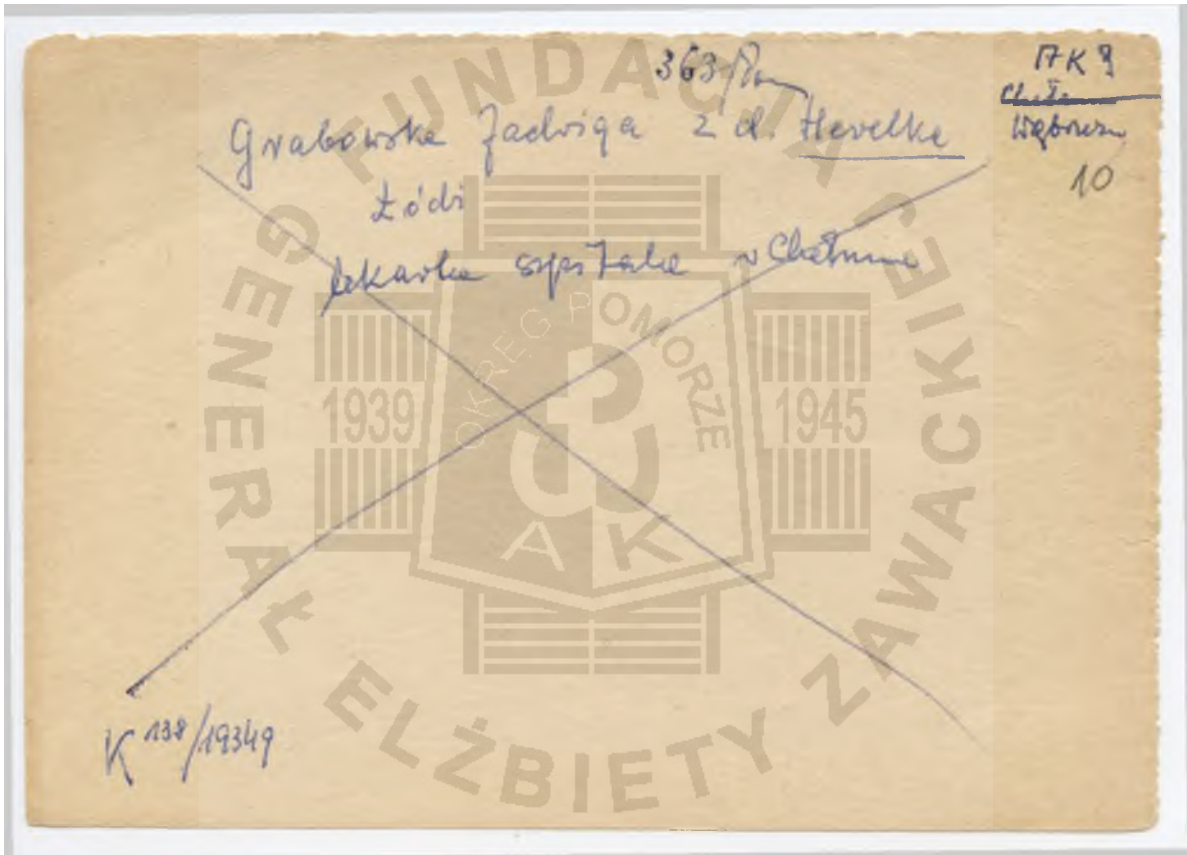 363/Pom
AK
Chełmno
Wąbrzeźno
10
Grabowska Jadwiga z d. Hevelke
Łódź
lekarka szpitala w Chełmnie
K 138/19349
FUNDACJA
GENERAŁ ELŻBIETY ZAWACKIEJ
OKRĘG POMORZE
1939
1945
AK